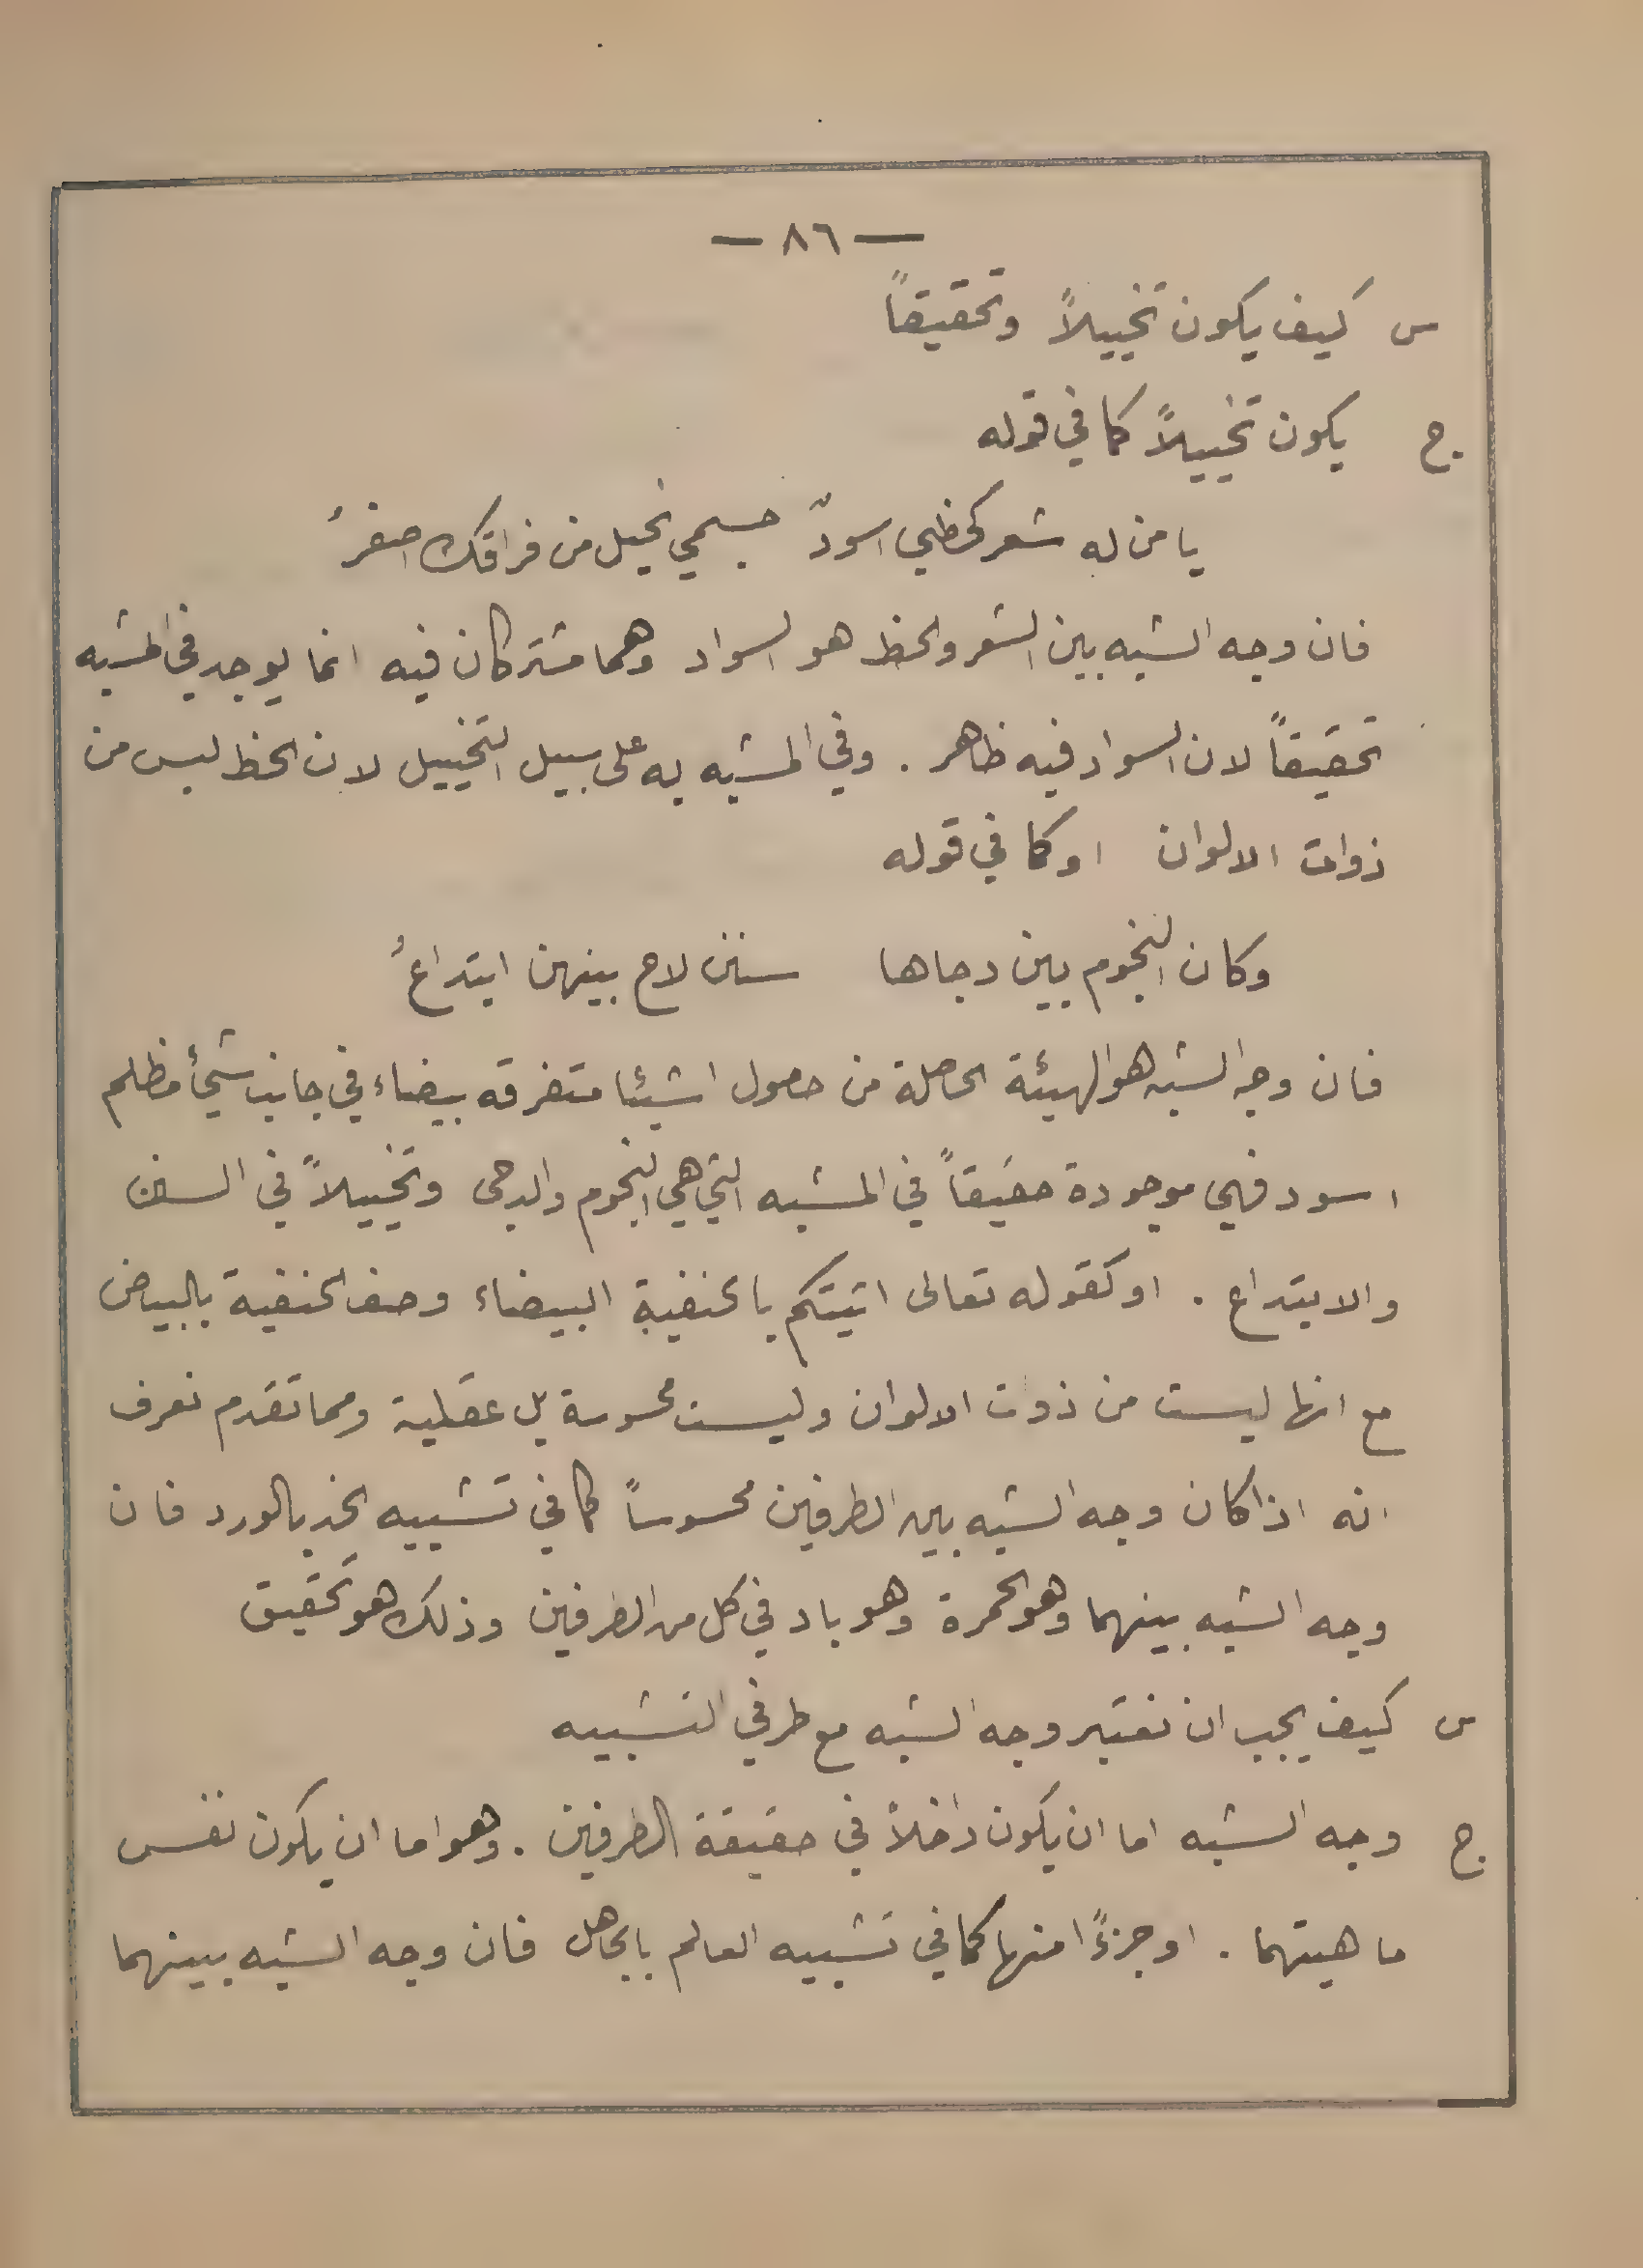 — ٨٦ —
س كيف يكون تخييلاً وتحقيقاً
ج يكون تخييلاً كما في قوله
يا من له شعر كحظي اسودّ جسمي نحيل من فراقك اصفرُ
فان وجه الشبه بين الشعر والحظ هو السواد وهما مشتركان فيه انما يوجد في المشبه
تحقيقاً لان السواد فيه ظاهر . وفي المشبه به على سبيل التخييل لان الحظ ليس من
ذوات الالوان او كما في قوله
وكان النجوم بين دجاها سنن لاح بينهن ابتداعُ
فان وجه الشبه هو الهيئة الحاصلة من حصول اشيئا متفرقه بيضاء في جانب شئ مظلم
اسود فهي موجودة حقيقاً في المشبه التي هي النجوم والدجى وتخييلاً في السنن
والابتداع . او كقوله تعالى اتيتكم بالحنفية البيضاء وصف الحنفية بالبياض
مع انها ليست من ذوت الالوان وليست محسوسة بل عقلية ومما تقدم نعرف
انه اذا كان وجه الشبه بين الطرفين محسوساً كما في تشبيه الخد بالورد فان
وجه الشبه بينهما وهو الحمرة وهو باد في كل من الطرفين وذلك هو تحقيق
س كيف يجب ان نعتبر وجه الشبه مع طرفي التشبيه
ج وجه الشبه اما ان يكون داخلاً في حقيقة الطرفين . وهو اما ان يكون نفس
ماهيتهما . او جزءً ا منها كما في تشبيه العالم بالجاهل فان وجه الشبه بينهما